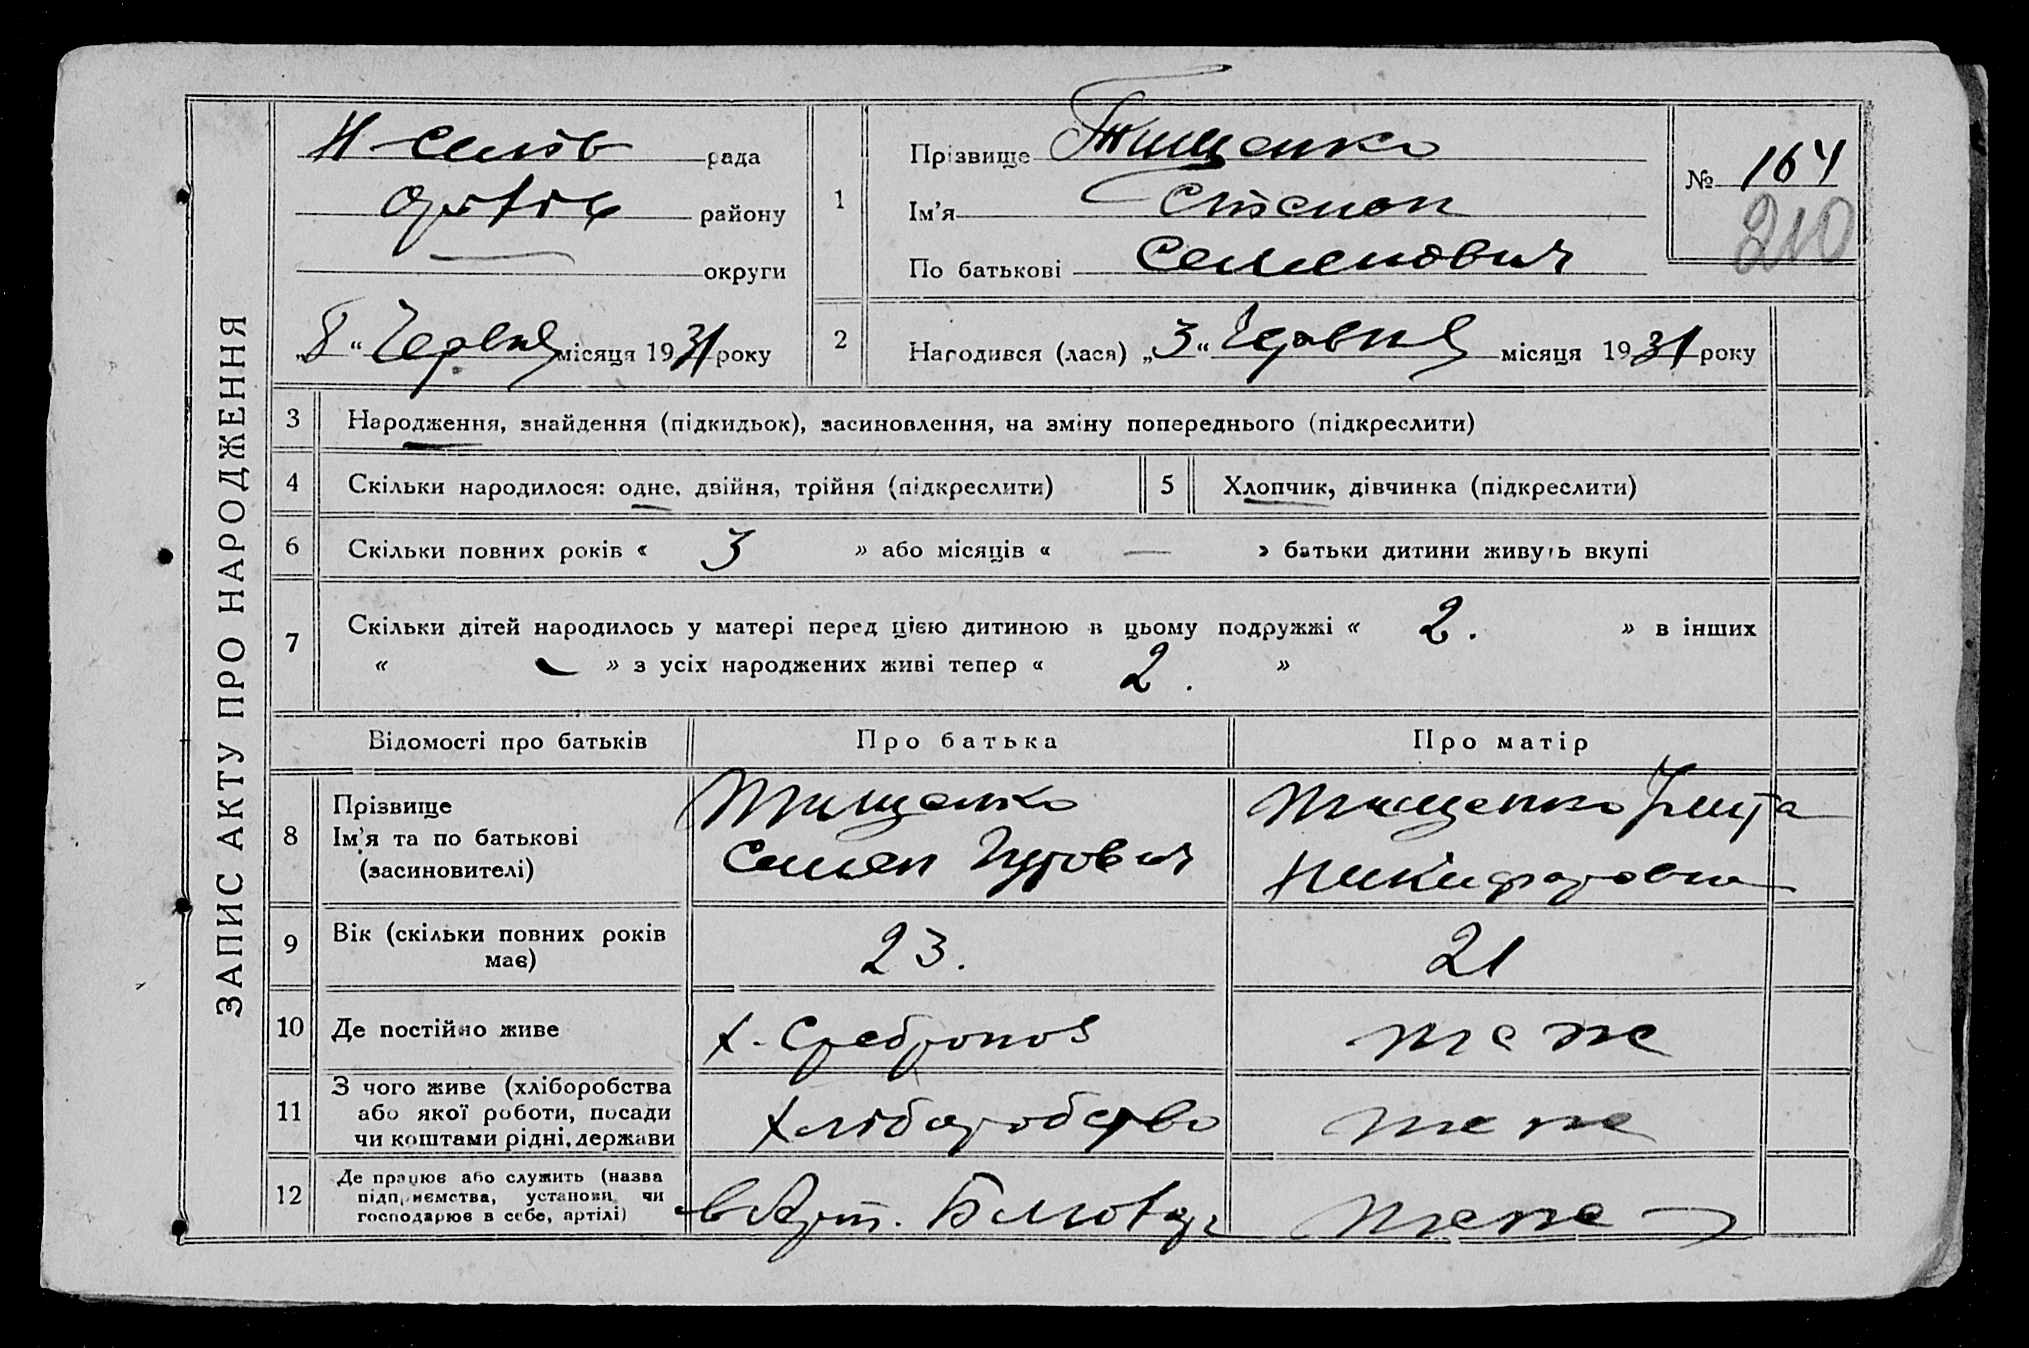 ЗАПИС АКТУ ПРО НАРОДЖЕННЯ
рада
району
округи
„8“ Червня місяця 1931 року
1
Прізвище Тищенко
Ім'я Степан
По батькові Семенович
№ 164
210
2
Народився (лася) „3“ Червня місяця 1931 року
3 Народження, знайдення (підкидьок), засиновлення, на зміну попереднього (підкреслити)
4 Скільки народилося: одне, двійня, трійня (підкреслити)
5 Хлопчик, дівчинка (підкреслити)
6 Скільки повних років « 3 » або місяців « — » батьки дитини живуть вкупі
7 Скільки дітей народилось у матері перед цією дитиною в цьому подружжі « 2. » в інших
« - » з усіх народжених живі тепер « 2. »
Відомості про батьків Про батька Про матір
8 Прізвище
Ім'я та по батькові
(засиновителі)
Тищенко
Семен
Тищенко
Никифоровна
9 Вік (скільки повних років
має)
23.
21
10 Де постійно живе
х.
теж
11 З чого живе (хліборобства
або якої роботи, посади
чи коштами рідні, держави
Хліборобство
теж
12 Де працює або служить (назва
підприємства, установи чи
господарює в себе, артілі)
в Арт.
теж